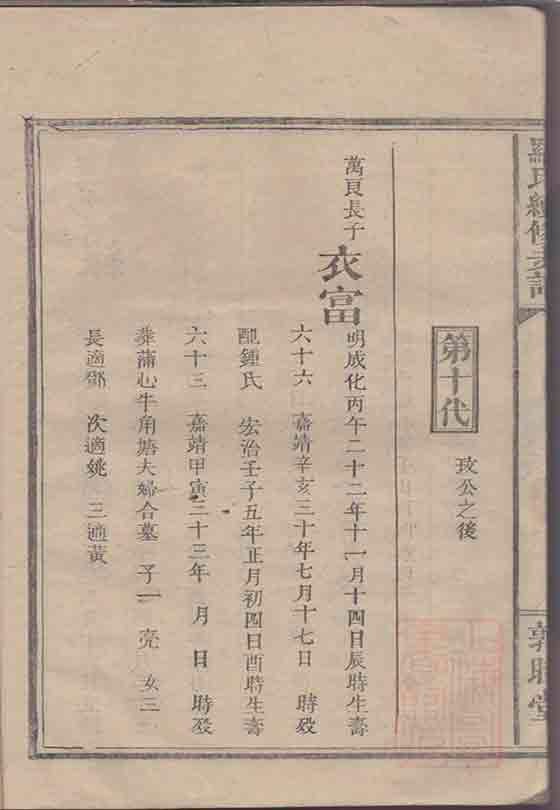 羅氏續修支譜
敦睦堂
第十代
玫公之後
萬良長子
衣富
明成化丙午二十二年十一月十四日辰時生壽
六十六 嘉靖辛亥三十年七月十七日 時歿
配鍾氏 宏治壬子五年正月初四日酉時生壽
六十三 嘉靖甲寅三十三年 月 日 時歿
葬蒲心牛角塘夫婦合墓 子一 亮 女三
長適鄧 次適姚 三適黃